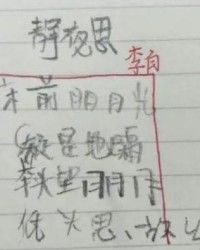 静夜思
李白
床前明月光
疑是地霜
举头望明月
低头思故